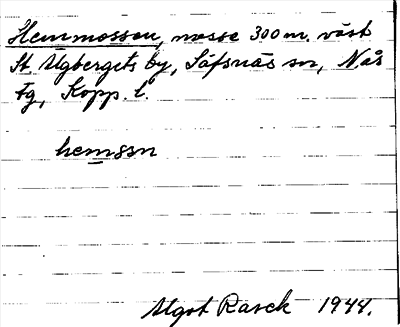 Hemmossen, mosse 300 m. väst
St. Ulgbergets by, Säfsnäs sn, Nås
tg, Kopp. l.
hemssn
Algot Rasck 1944.